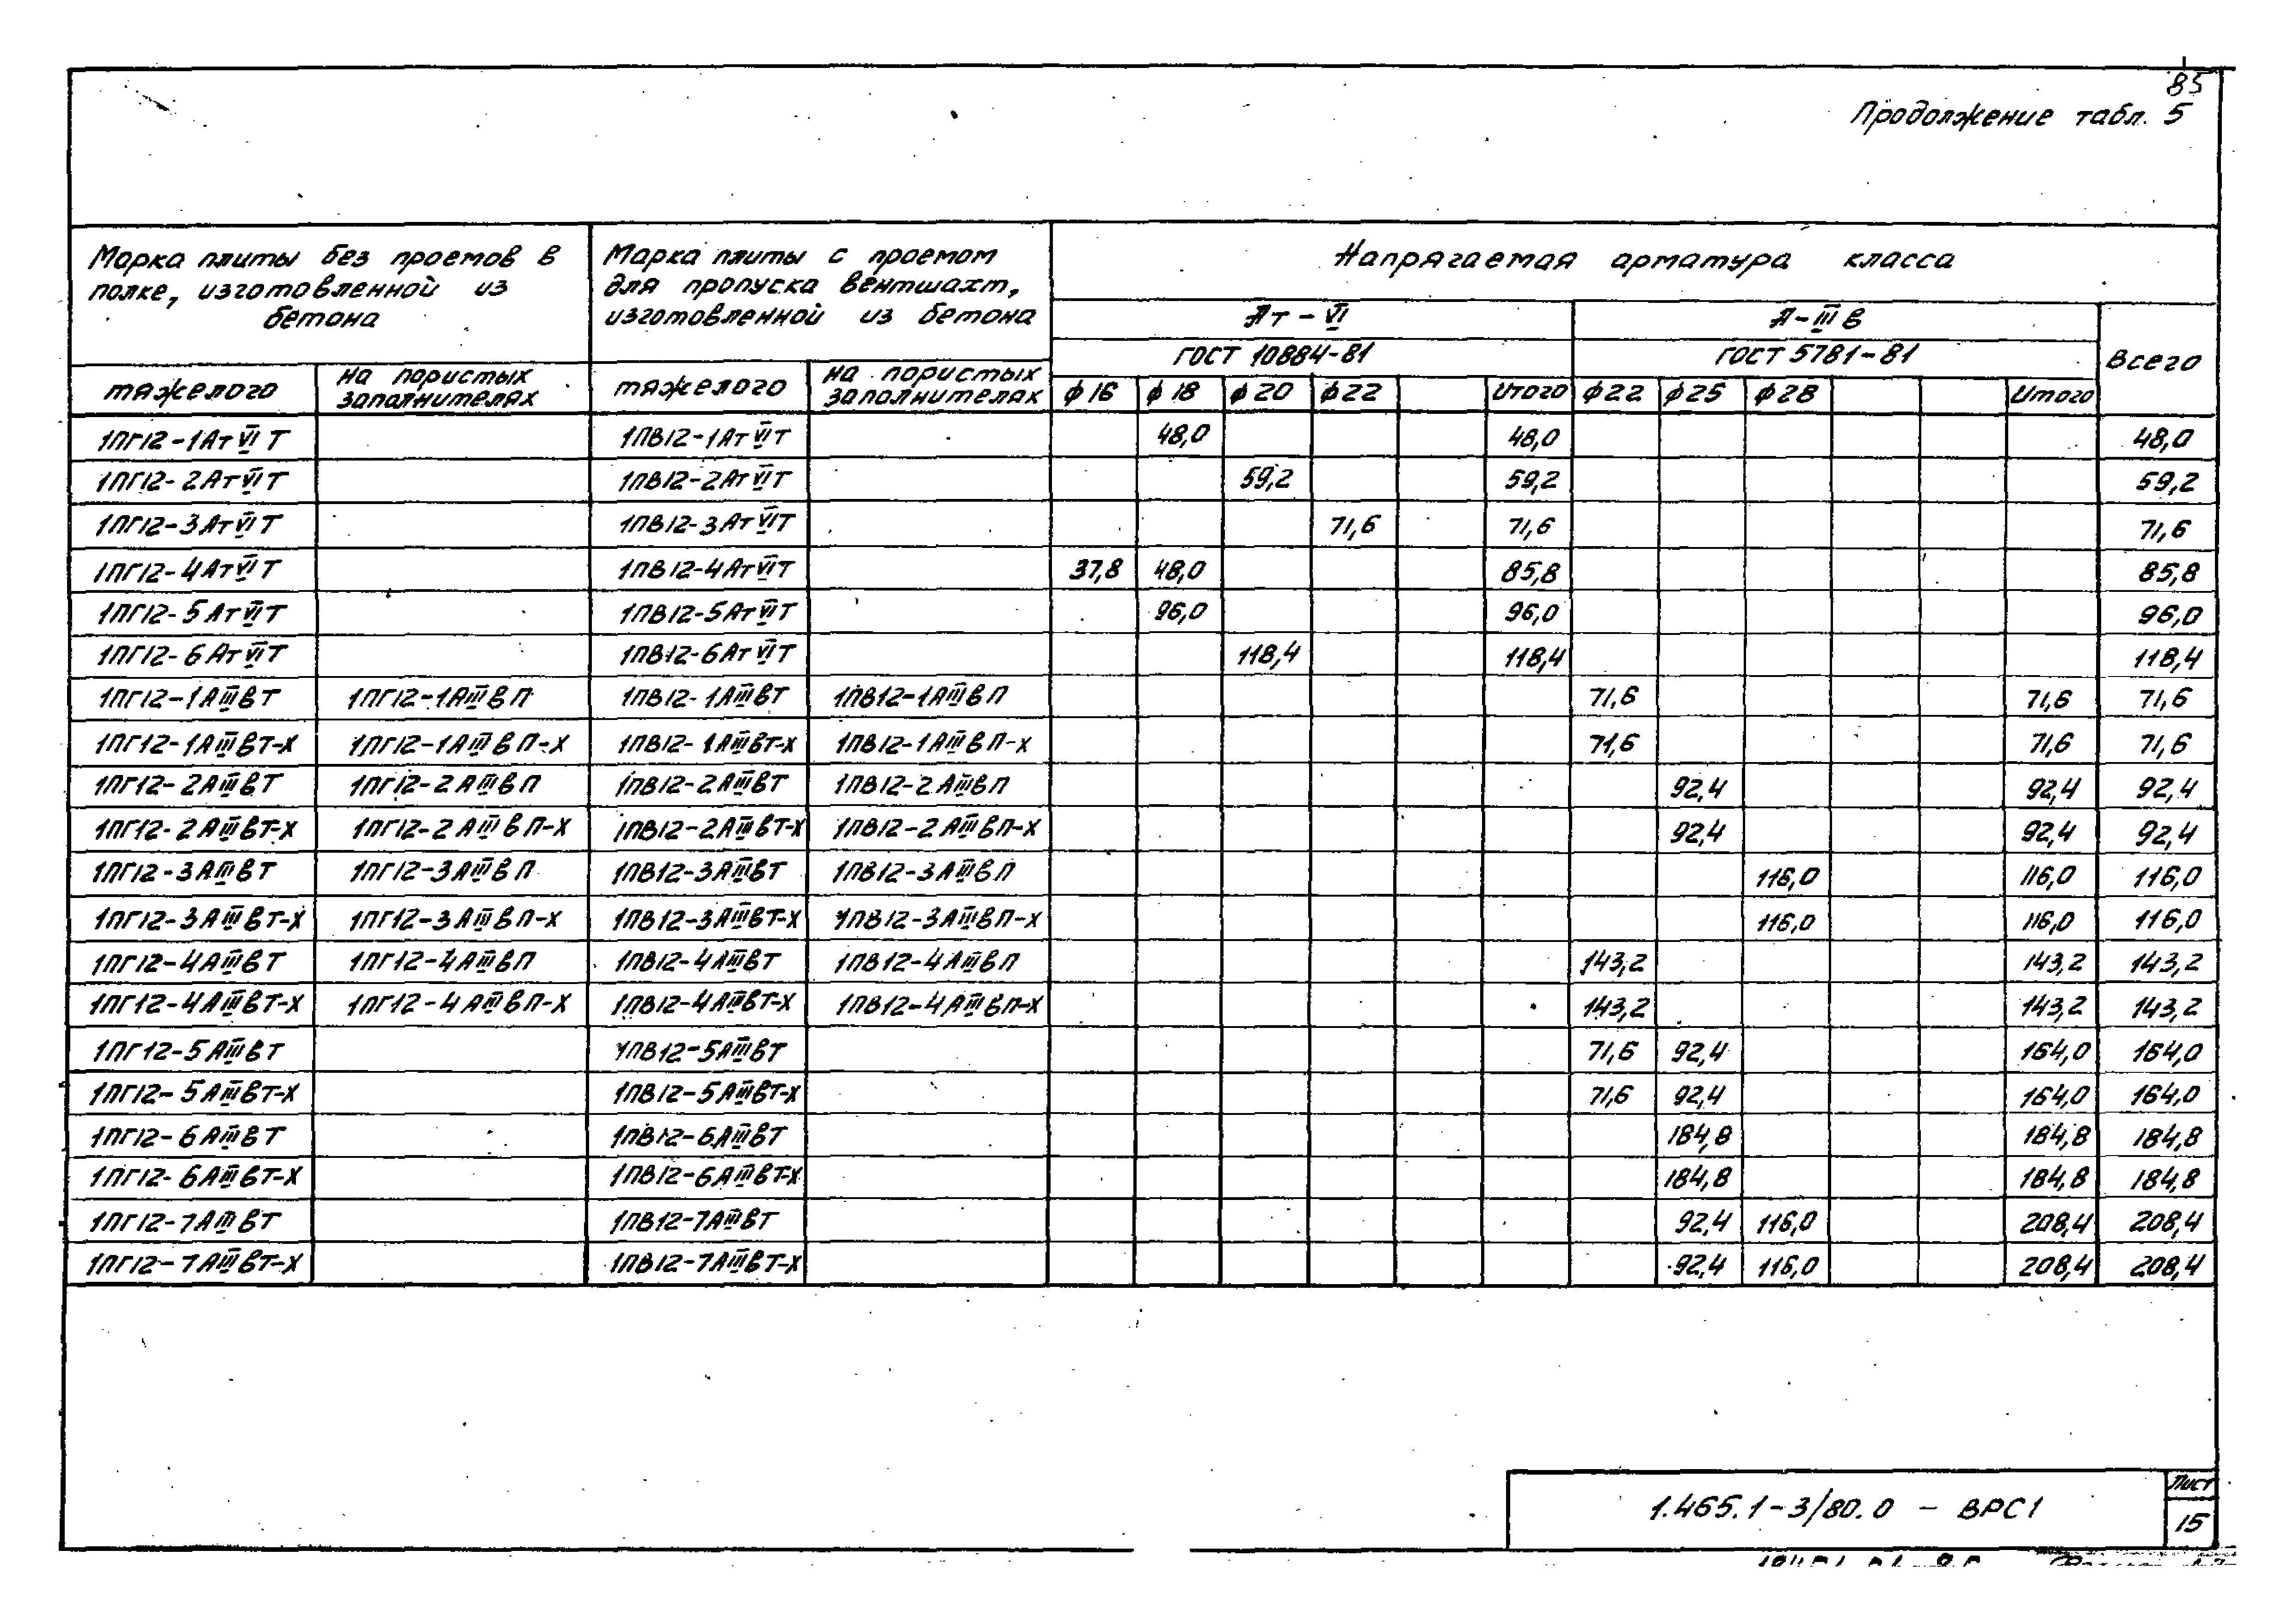 85
Продолжение табл. 5
Марка плиты без проемов в
полке, изготовленной из
бетона
Марка плиты с проемом
для пропуска вентшахт,
изготовленной из бетона
Напрягаемая арматура класса
Ат-VI
А-IIIв
Всего
ГОСТ 10884-81
ГОСТ 5781-81
тяжелого
на пористых
заполнителях
тяжелого
на пористых
заполнителях
ф16 ф18 ф20 ф22 Итого ф22 ф25 ф28 Итого
1ПГ12-1АтVIТ 1ПВ12-1АтVIТ 48,0 48,0 48,0
1ПГ12-2АтVIТ 1ПВ12-2АтVIТ 59,2 59,2 59,2
1ПГ12-3АтVIТ 1ПВ12-3АтVIТ 71,6 71,6 71,6
1ПГ12-4АтVIТ 1ПВ12-4АтVIТ 37,8 48,0 85,8 85,8
1ПГ12-5АтVIТ 1ПВ12-5АтVIТ 96,0 96,0 96,0
1ПГ12-6АтVIТ 1ПВ12-6АтVIТ 118,4 118,4 118,4
1ПГ12-1АIIIвТ 1ПГ12-1АIIIвП 1ПВ12-1АIIIвТ 1ПВ12-1АIIIвП 71,6 71,6 71,6
1ПГ12-1АIIIвТ-Х 1ПГ12-1АIIIвП-Х 1ПВ12-1АIIIвТ-Х 1ПВ12-1АIIIвП-Х 71,6 71,6 71,6
1ПГ12-2АIIIвТ 1ПГ12-2АIIIвП 1ПВ12-2АIIIвТ 1ПВ12-2АIIIвП 92,4 92,4 92,4
1ПГ12-2АIIIвТ-Х 1ПГ12-2АIIIвП-Х 1ПВ12-2АIIIвТ-Х 1ПВ12-2АIIIвП-Х 92,4 92,4 92,4
1ПГ12-3АIIIвТ 1ПГ12-3АIIIвП 1ПВ12-3АIIIвТ 1ПВ12-3АIIIвП 116,0 116,0 116,0
1ПГ12-3АIIIвТ-Х 1ПГ12-3АIIIвП-Х 1ПВ12-3АIIIвТ-Х 1ПВ12-3АIIIвП-Х 116,0 116,0 116,0
1ПГ12-4АIIIвТ 1ПГ12-4АIIIвП 1ПВ12-4АIIIвТ 1ПВ12-4АIIIвП 143,2 143,2 143,2
1ПГ12-4АIIIвТ-Х 1ПГ12-4АIIIвП-Х 1ПВ12-4АIIIвТ-Х 1ПВ12-4АIIIвП-Х 143,2 143,2 143,2
1ПГ12-5АIIIвТ 1ПВ12-5АIIIвТ 71,6 92,4 164,0 164,0
1ПГ12-5АIIIвТ-Х 1ПВ12-5АIIIвТ-Х 71,6 92,4 164,0 164,0
1ПГ12-6АIIIвТ 1ПВ12-6АIIIвТ 184,8 184,8 184,8
1ПГ12-6АIIIвТ-Х 1ПВ12-6АIIIвТ-Х 184,8 184,8 184,8
1ПГ12-7АIIIвТ 1ПВ12-7АIIIвТ 92,4 116,0 208,4 208,4
1ПГ12-7АIIIвТ-Х 1ПВ12-7АIIIвТ-Х 92,4 116,0 208,4 208,4
1.465.1-3/80.0 - ВРС1
Лист
15